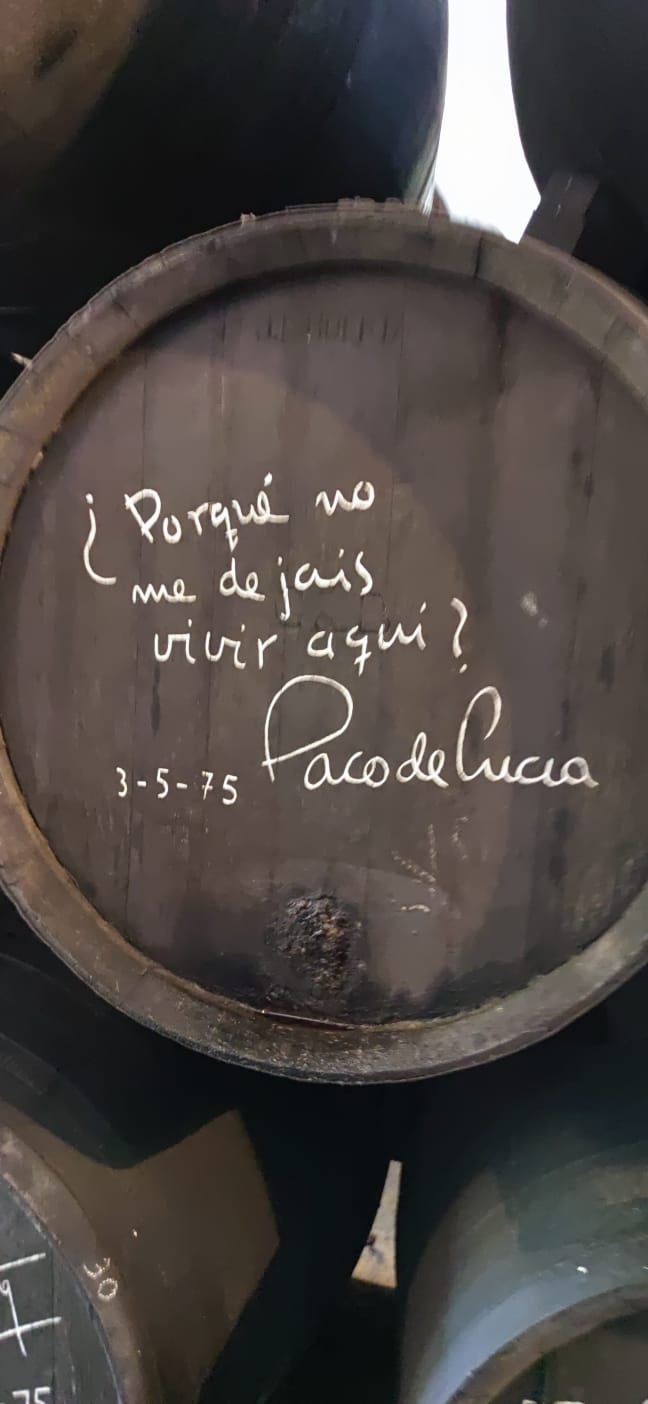 ¿Porqué no
me dejais
vivir aqui?
Paco de Lucia
3-5-75
30
75